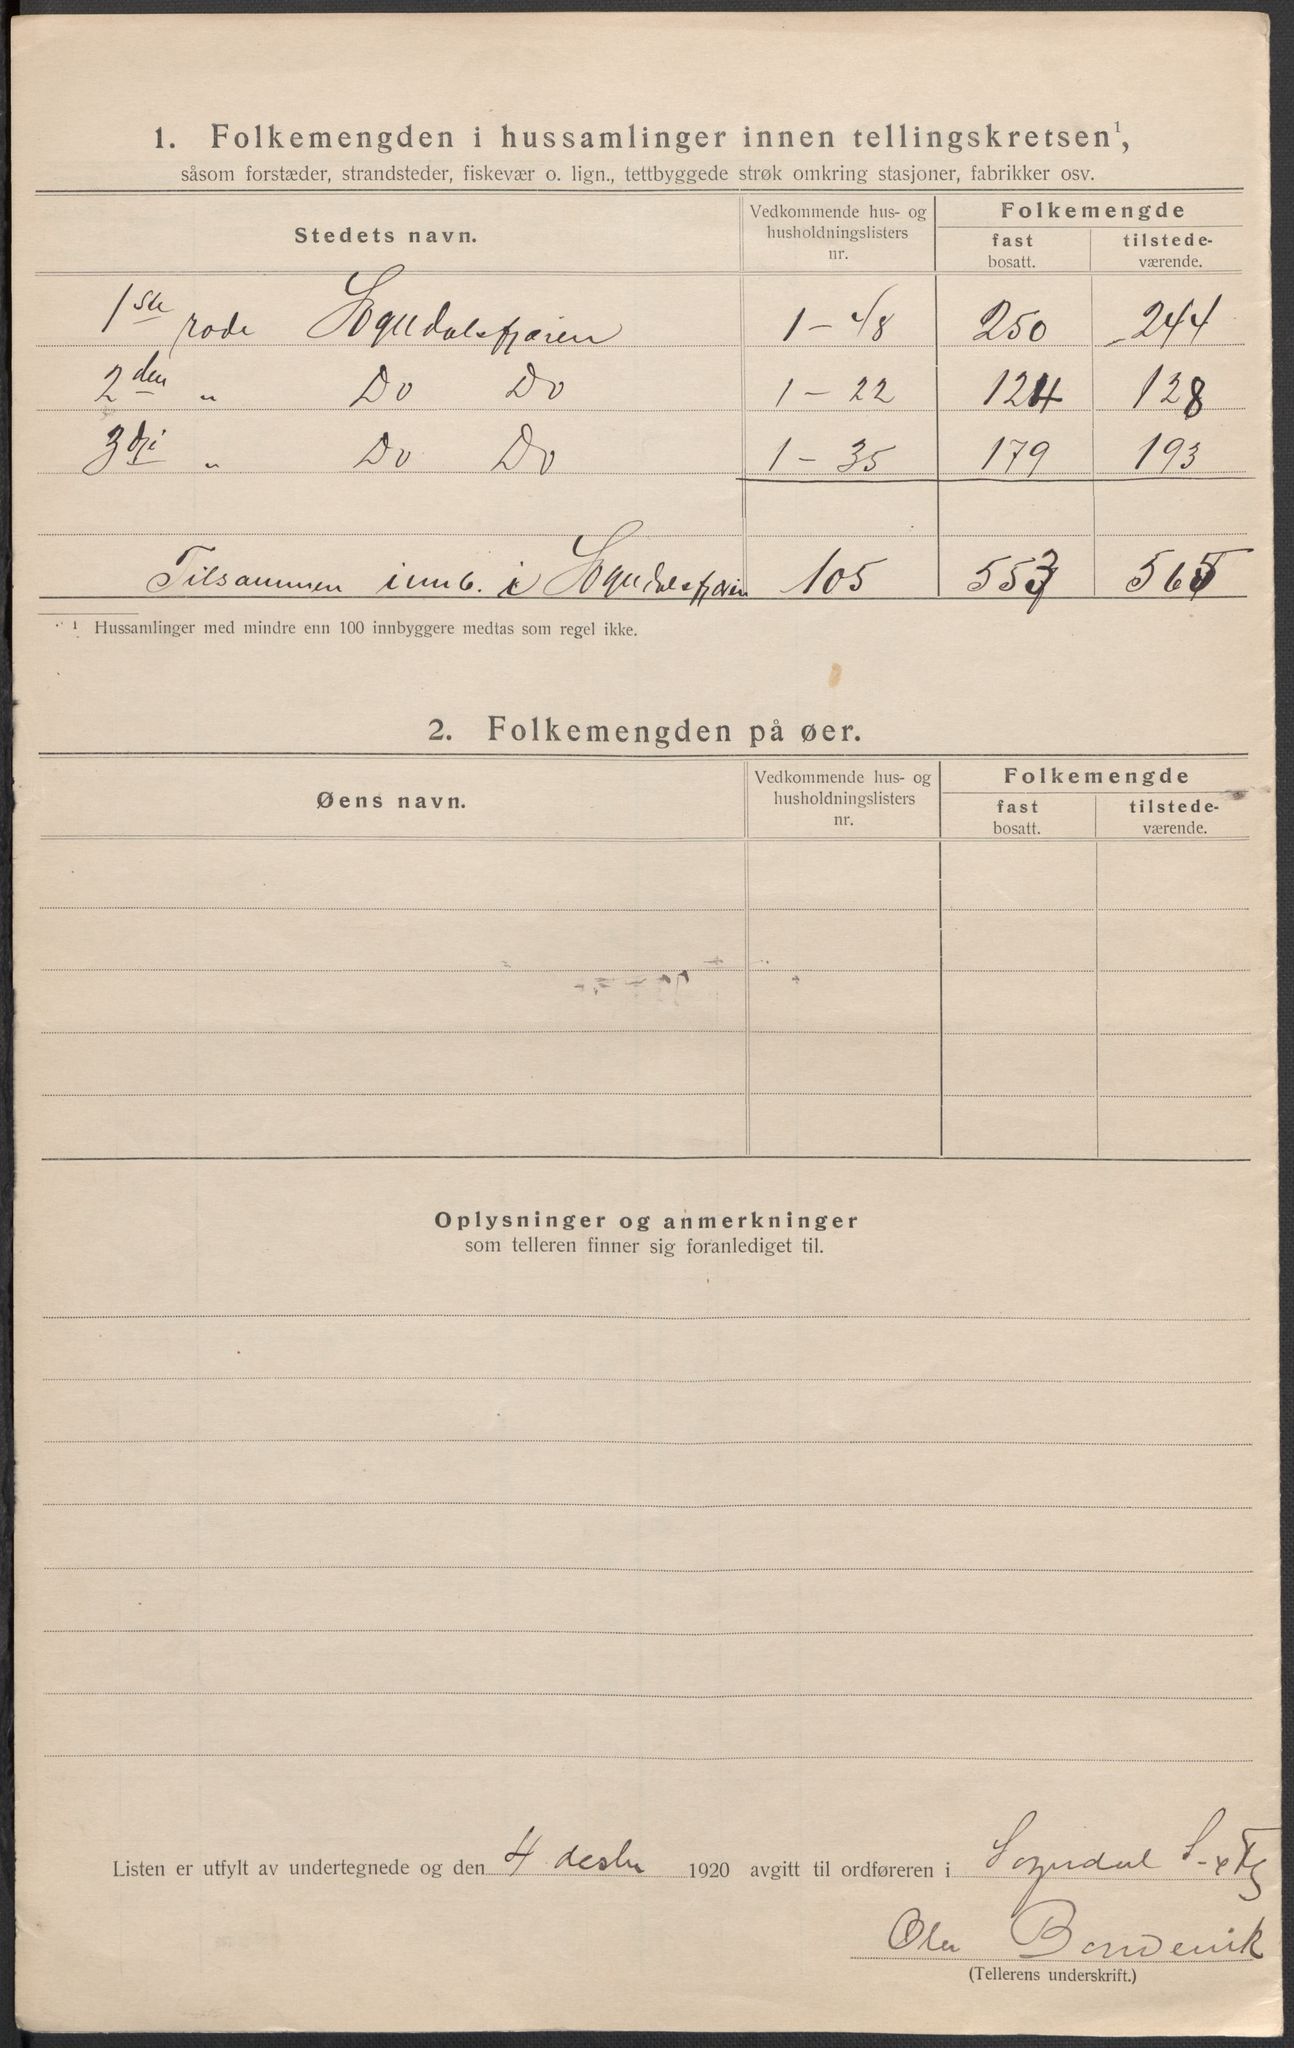 1. Folkemengden i hussamlinger innen tellingskretsen¹,
såsom forstæder, strandsteder, fiskevær o. lign., tettbyggede strøk omkring stasjoner, fabrikker osv.
Stedets navn.
Vedkommende hus- og husholdningslisters nr.
Folkemengde
fast bosatt.
tilstede-værende.
1ste rode Sogndalsfjæren 1 – 48 250 244
2den " Do Do 1 – 22 124 128
3dje " Do Do 1 – 35 179 193
Tilsammen innb. i Sogndalsfjæren 105 553 565
¹ Hussamlinger med mindre enn 100 innbyggere medtas som regel ikke.
2. Folkemengden på øer.
Øens navn.
Vedkommende hus- og husholdningslisters nr.
Folkemengde
fast bosatt.
tilstede-værende.
Oplysninger og anmerkninger
som telleren finner sig foranlediget til.
Listen er utfylt av undertegnede og den 4 desbr 1920 avgitt til ordføreren i Sogndal
Olav Bondevik
(Tellerens underskrift.)